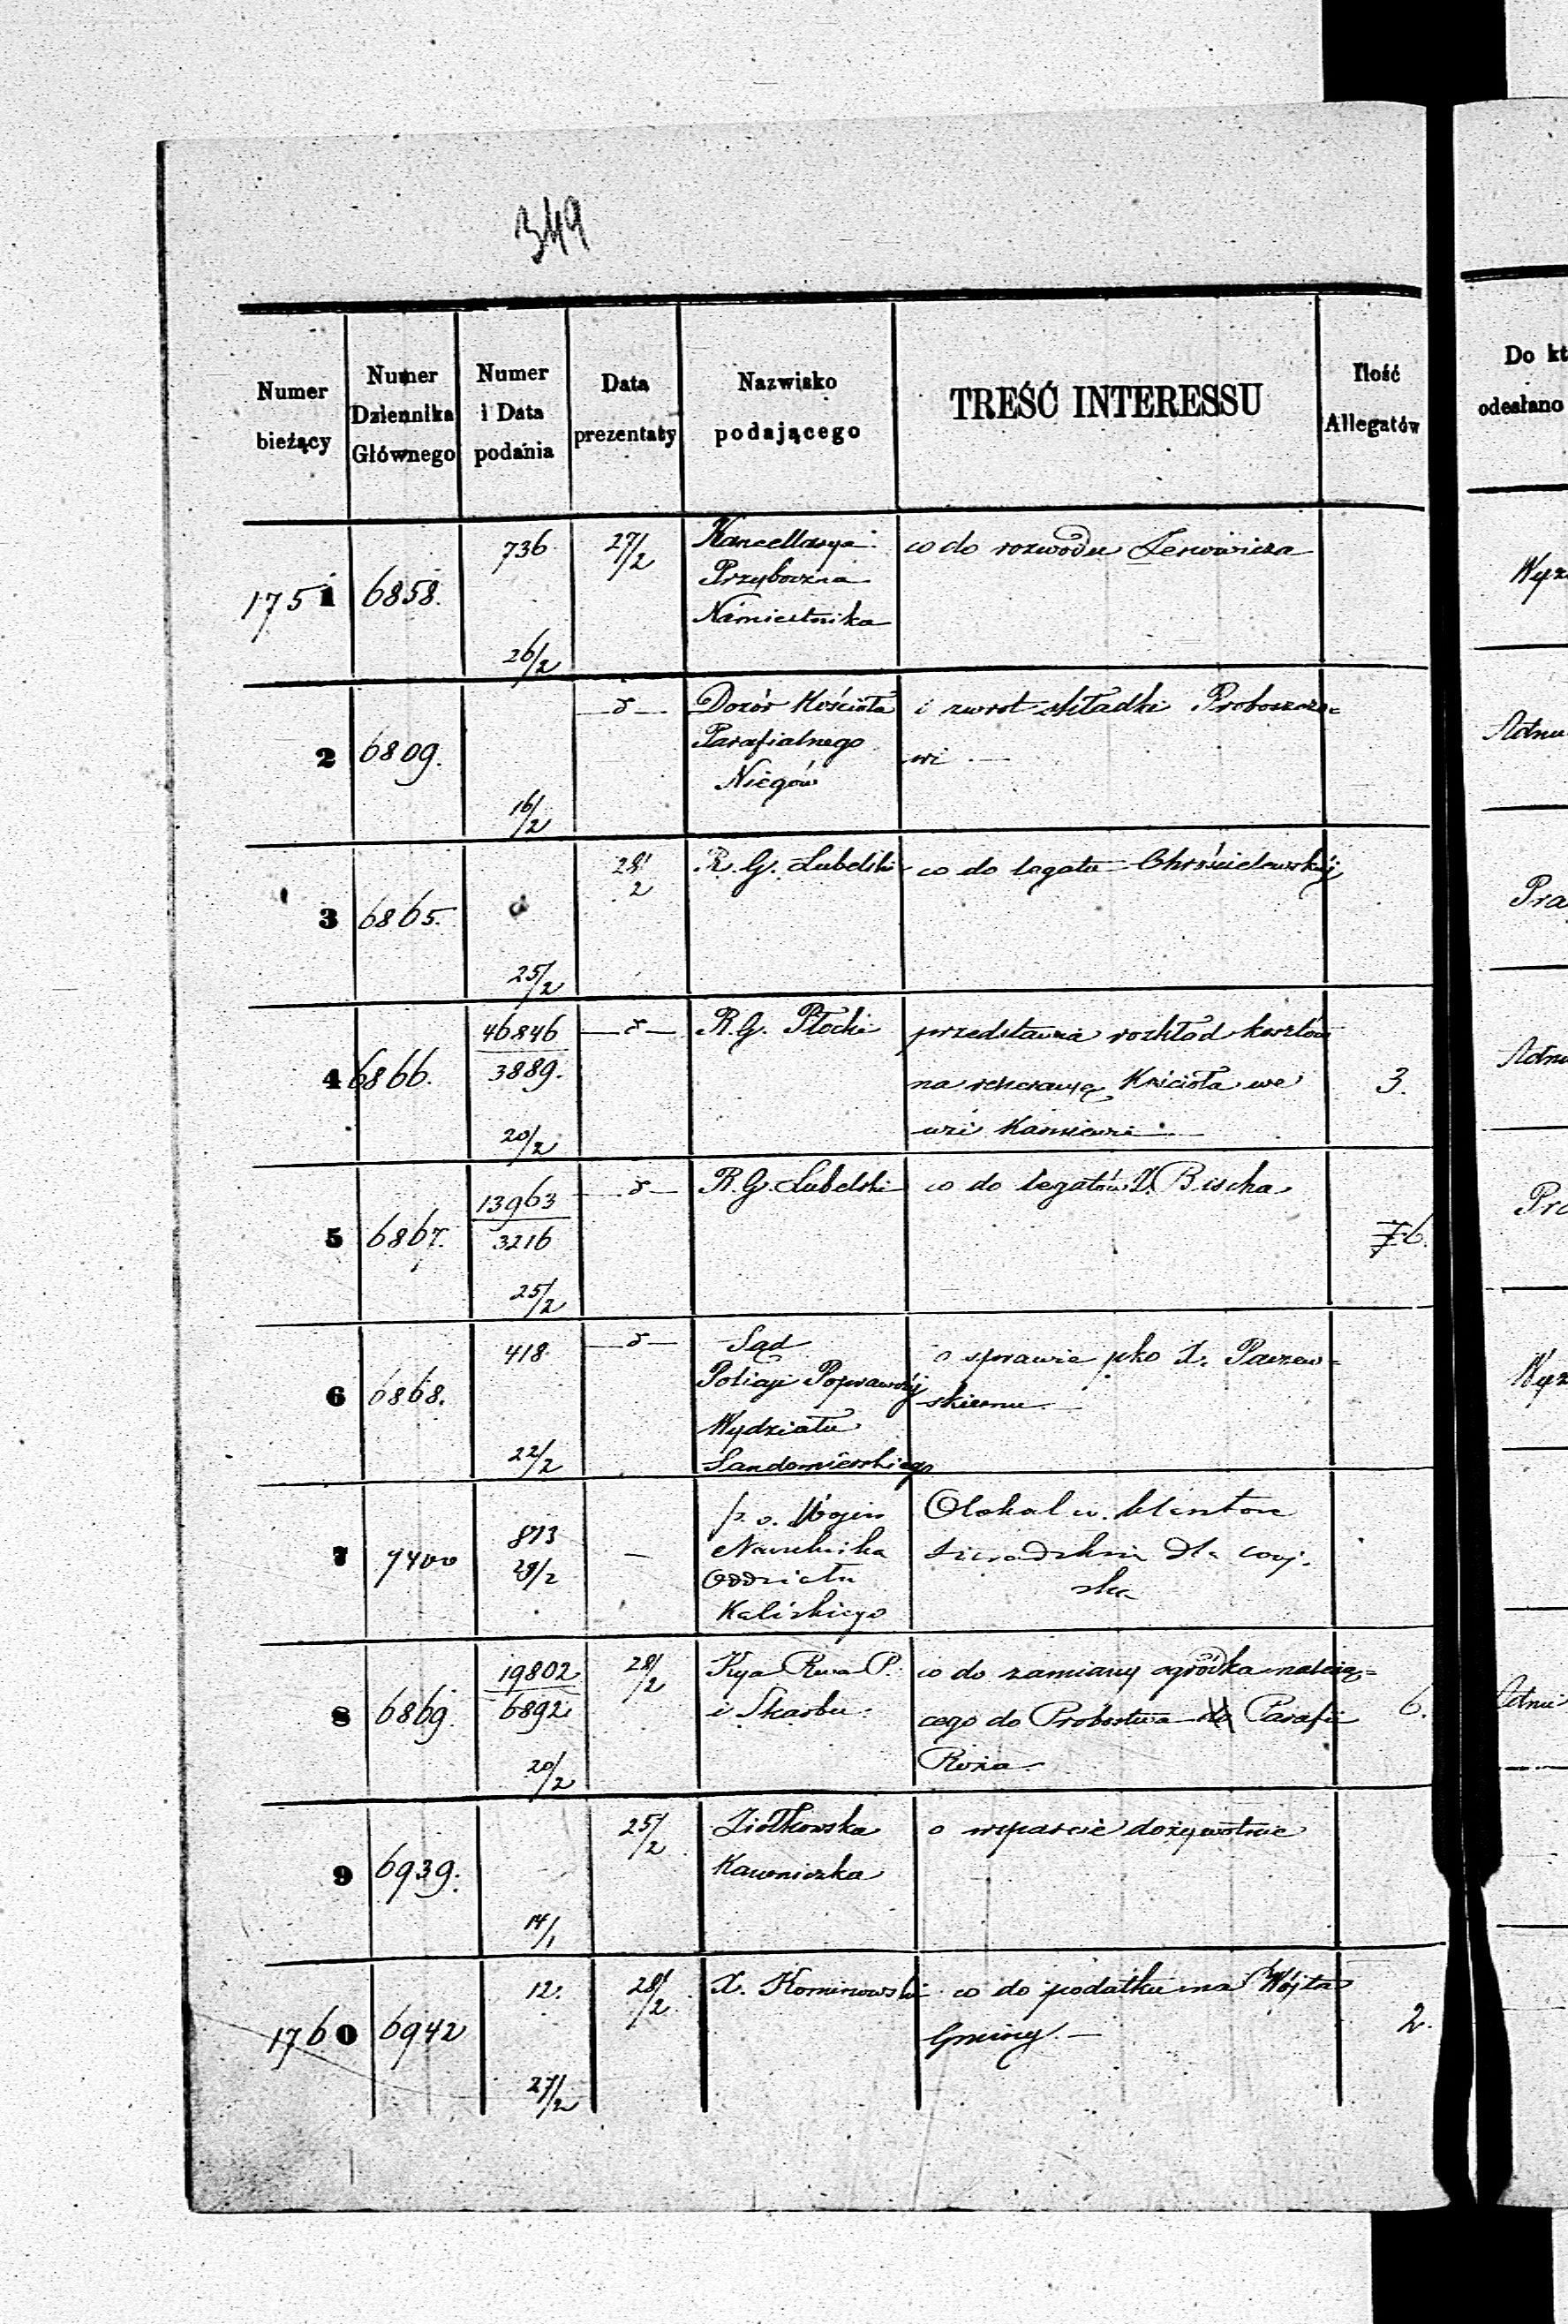 349
Numer bieżący | Numer Dziennika Głównego | Numer i Data podania | Data prezentaty | Nazwisko podającego | TREŚĆ INTERESSU | Ilość Allegatów | Do kt
odesłano
1751 | 6858. | 736 | 27/2 | Kancellarya | co do rozwodu Lenowicza
Przyboczna | Wyz
Namiestnika
26/2
2 | 6809. | —d— | Dozór Kościoła | i zwrot składki Proboszczo=
Parafialnego | wi — | Admi
Niegów
16/2
3 | 6865. | 28/2 | R. G. Lubelski | co do legatu Chróścielewskiéj
25/2 | Pra
4 | 6866. | 46846 | —d— | R. G. Płocki | przedstawia rozkład kosztów
3889. | na reperacyą Kościoła we | 3. | Admi
20/2 | wsi
5 | 6867. | 13963 | —d— | R. G. Lubelski | co do legatów X. Bischa
3216 | 7 6. | Pra
25/2
6 | 6868. | 418 | —d— | Sąd | o sprawie pko X. Paszew=
Policyi Poprawczéj | skiemu — | Wyz
Wydziału
22/2 | Sandomierskiego
7 | 7400 | 873 | — | p. o. Wojen | O lokal w klasztorze
28/2 | Naczelnika | Sieradzkim dla woj=
Oddziału | ska
Kaliskiego
8 | 6869. | 19802 | 28/2 | Kya Rwa P. | co do zamiany ogródka należą=
6892 | i Skarbu | cego do Probostwa Parafii | 6. | Admi
20/2 | Roża —
9 | 6939. | 25/2 | Ziółkowska | o wsparcie dożywotnie
Kawoniczka
14/1
1760 | 6942 | 12. | 28/2 | X. Kominowski | co do podatku na Wójta
Gminy — | 2.
27/2